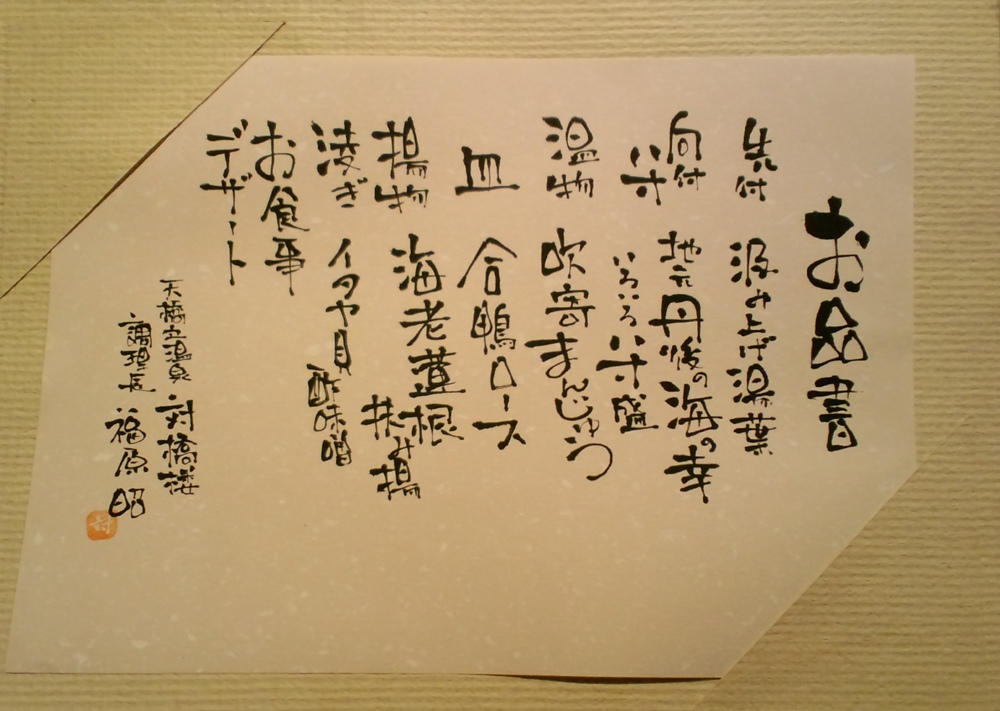 お品書
先付 汲み上げ湯葉
向付 地元丹後の海の幸
八寸 いろいろ八寸盛
温物 吹寄まんじゅう
皿 合鴨ロース
揚物 海老蓮根挟み揚
凌ぎ イタヤ貝酢味噌
お食事
デザート
天橋立温泉 対橋楼
調理長 福原昭
対